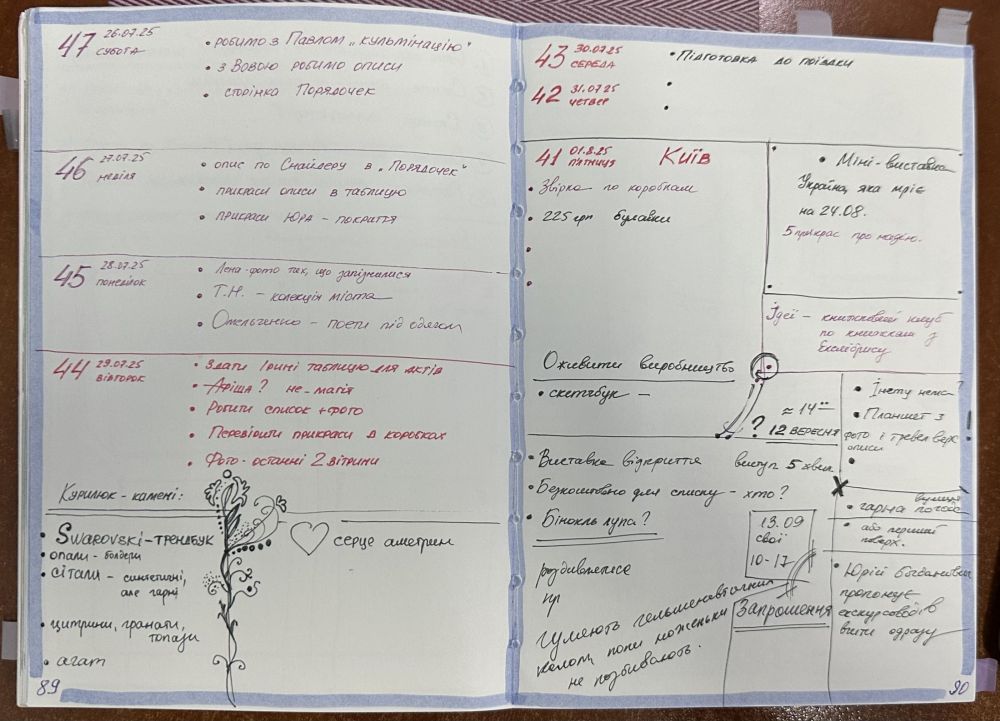 47 26.07.25
СУБОТА
• РОБИМО З ПАВЛОМ „КУЛЬМІНАЦІЮ"
• З ВОВОЮ РОБИМО ОПИСИ
• СТОРІНКА ПОРЯДОЧЕК
46 27.07.25
НЕДІЛЯ
• ОПИС ПО СНАЙДЕРУ В „ПОРЯДОЧЕК"
• ПРИКРАСИ ОПИСИ В ТАБЛИЦЮ
• ПРИКРАСИ ЮРА - ПОКРИТТЯ
45 28.07.25
ПОНЕДІЛОК
• Лєна-фото тих, що запізнилися
• Т.Н. - колекція міста
• Омельченко - поети під одягом
44 29.07.25
ВІВТОРОК
• Здати Ірині таблицю для актів
• Аріша? не магія
• Робити список + фото
• Перевірити прикраси в коробках
• Фото останні 2 вітрини
Курилюк - камені:
• Swarovski - трендбук
• опали - болдери
• сітали - синтетичні,
але гарні
• цитрини, гранати,
топази
• агат
серце аметрин
89
43 30.07.25
СЕРЕДА
• Підготовка до поїздки
42 31.07.25
ЧЕТВЕР
41 01.8.25
П'ЯТНИЦЯ
Київ
• Звірка по коробкам
• 225 грн булавки
• Міні-виставка
Україна, яка мріє
на 24.08.
5 прикрас про надію.
Ідеї - книжковий клуб
по книжкам з
Екслібрису
Оживити виробництво
• скетчбук -
? ≈ 14°°
12 ВЕРЕСНЯ
• Інету нема?
• Планшет з
фото і тревел верх
описи
• Виставка відкриття виступ 5 хвил.
• Безкоштовно для списку - хто?
• Бінокль лупа?
роздивлятися
13.09
свої
10-17
Запрошення
гуляють
колом, поки ноженьки
не позбивають.
• гарна погода
вулиця
• або перший
поверх.
• Юрій Богданович
пропонує
екскурсоводів
вчити одразу
90